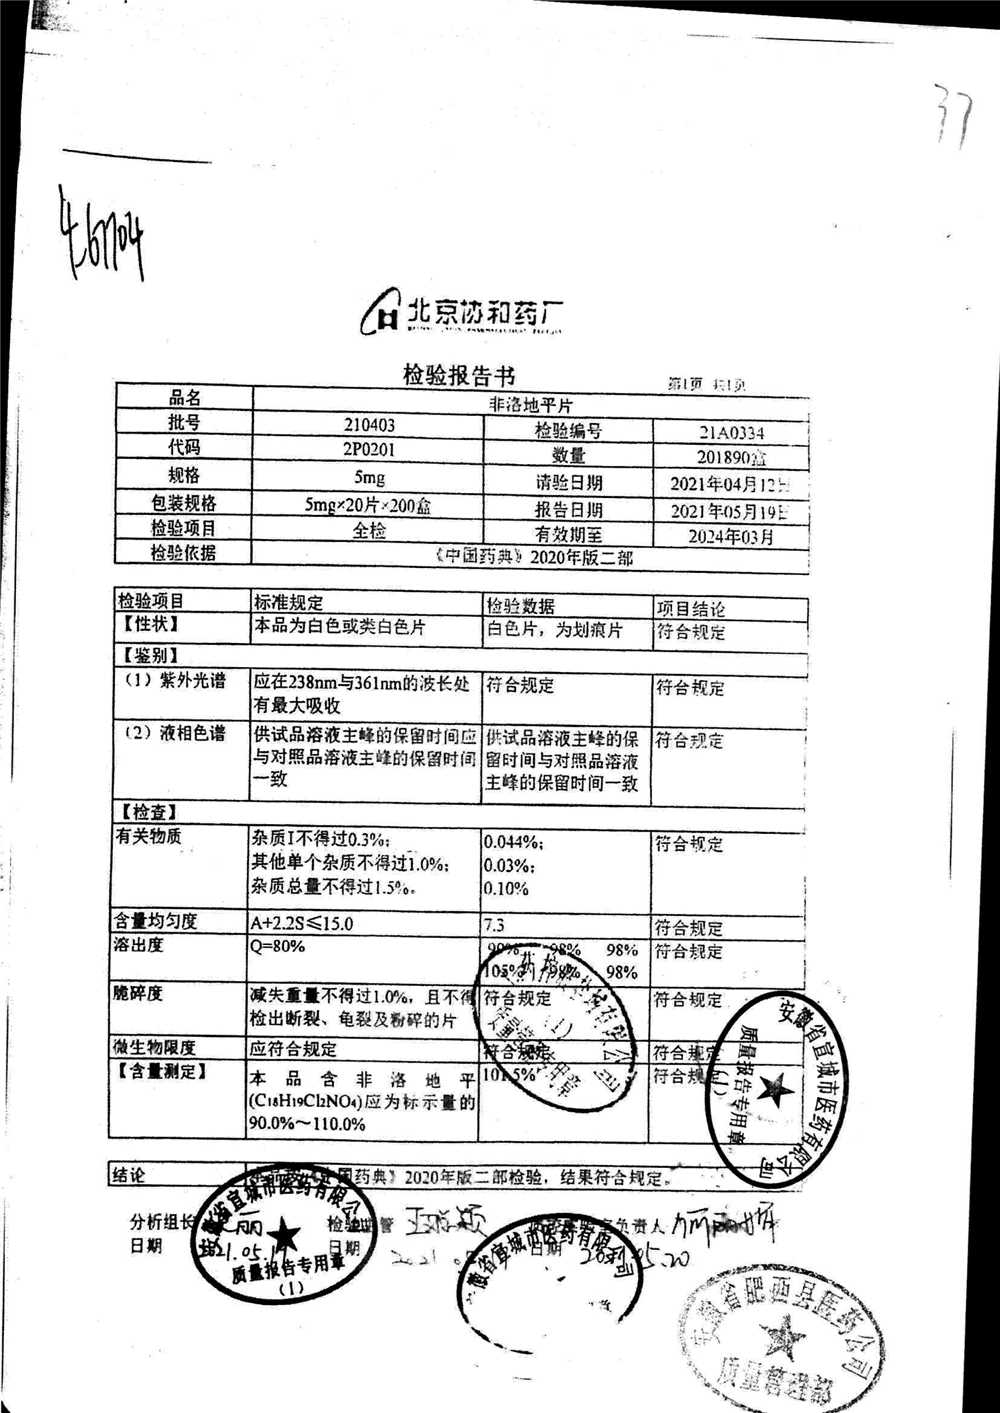 37
467704
北京协和药厂
检验报告书
第1页 共1页
品名 非洛地平片
批号 210403 检验编号 21A0334
代码 2P0201 数量 201890盒
规格 5mg 请验日期 2021年04月12日
包装规格 5mg×20片×200盒 报告日期 2021年05月19日
检验项目 全检 有效期至 2024年03月
检验依据 《中国药典》2020年版二部
检验项目 标准规定 检验数据 项目结论
【性状】 本品为白色或类白色片 白色片，为划痕片 符合规定
【鉴别】
（1）紫外光谱 应在238nm与361nm的波长处 符合规定 符合规定
有最大吸收
（2）液相色谱 供试品溶液主峰的保留时间应 供试品溶液主峰的保 符合规定
与对照品溶液主峰的保留时间 留时间与对照品溶液
一致 主峰的保留时间一致
【检查】
有关物质 杂质I不得过0.3%； 0.044%； 符合规定
其他单个杂质不得过1.0%； 0.03%；
杂质总量不得过1.5%。 0.10%
含量均匀度 A+2.2S≤15.0 7.3 符合规定
溶出度 Q=80% 99% 98% 98% 符合规定
105% 98% 98%
脆碎度 减失重量不得过1.0%，且不得 符合规定 符合规定
检出断裂、龟裂及粉碎的片
微生物限度 应符合规定 符合规定 符合规定
【含量测定】 本品含非洛地平 101.5% 符合规
(C18H19Cl2NO4)应为标示量的
90.0%～110.0%
结论 《中国药典》2020年版二部检验，结果符合规定。
分析组长 丽 检验监管 负责人
日期 21.05.19 日期 2021.0 日期 05.20
安徽省宣城市医药有限公司
质量报告专用章
(1)
安徽省宣城市医药有限公司
质量报告专用章
(1)
徽省宣城市医药有限公司
安徽省肥西县医药公司
质量管理部